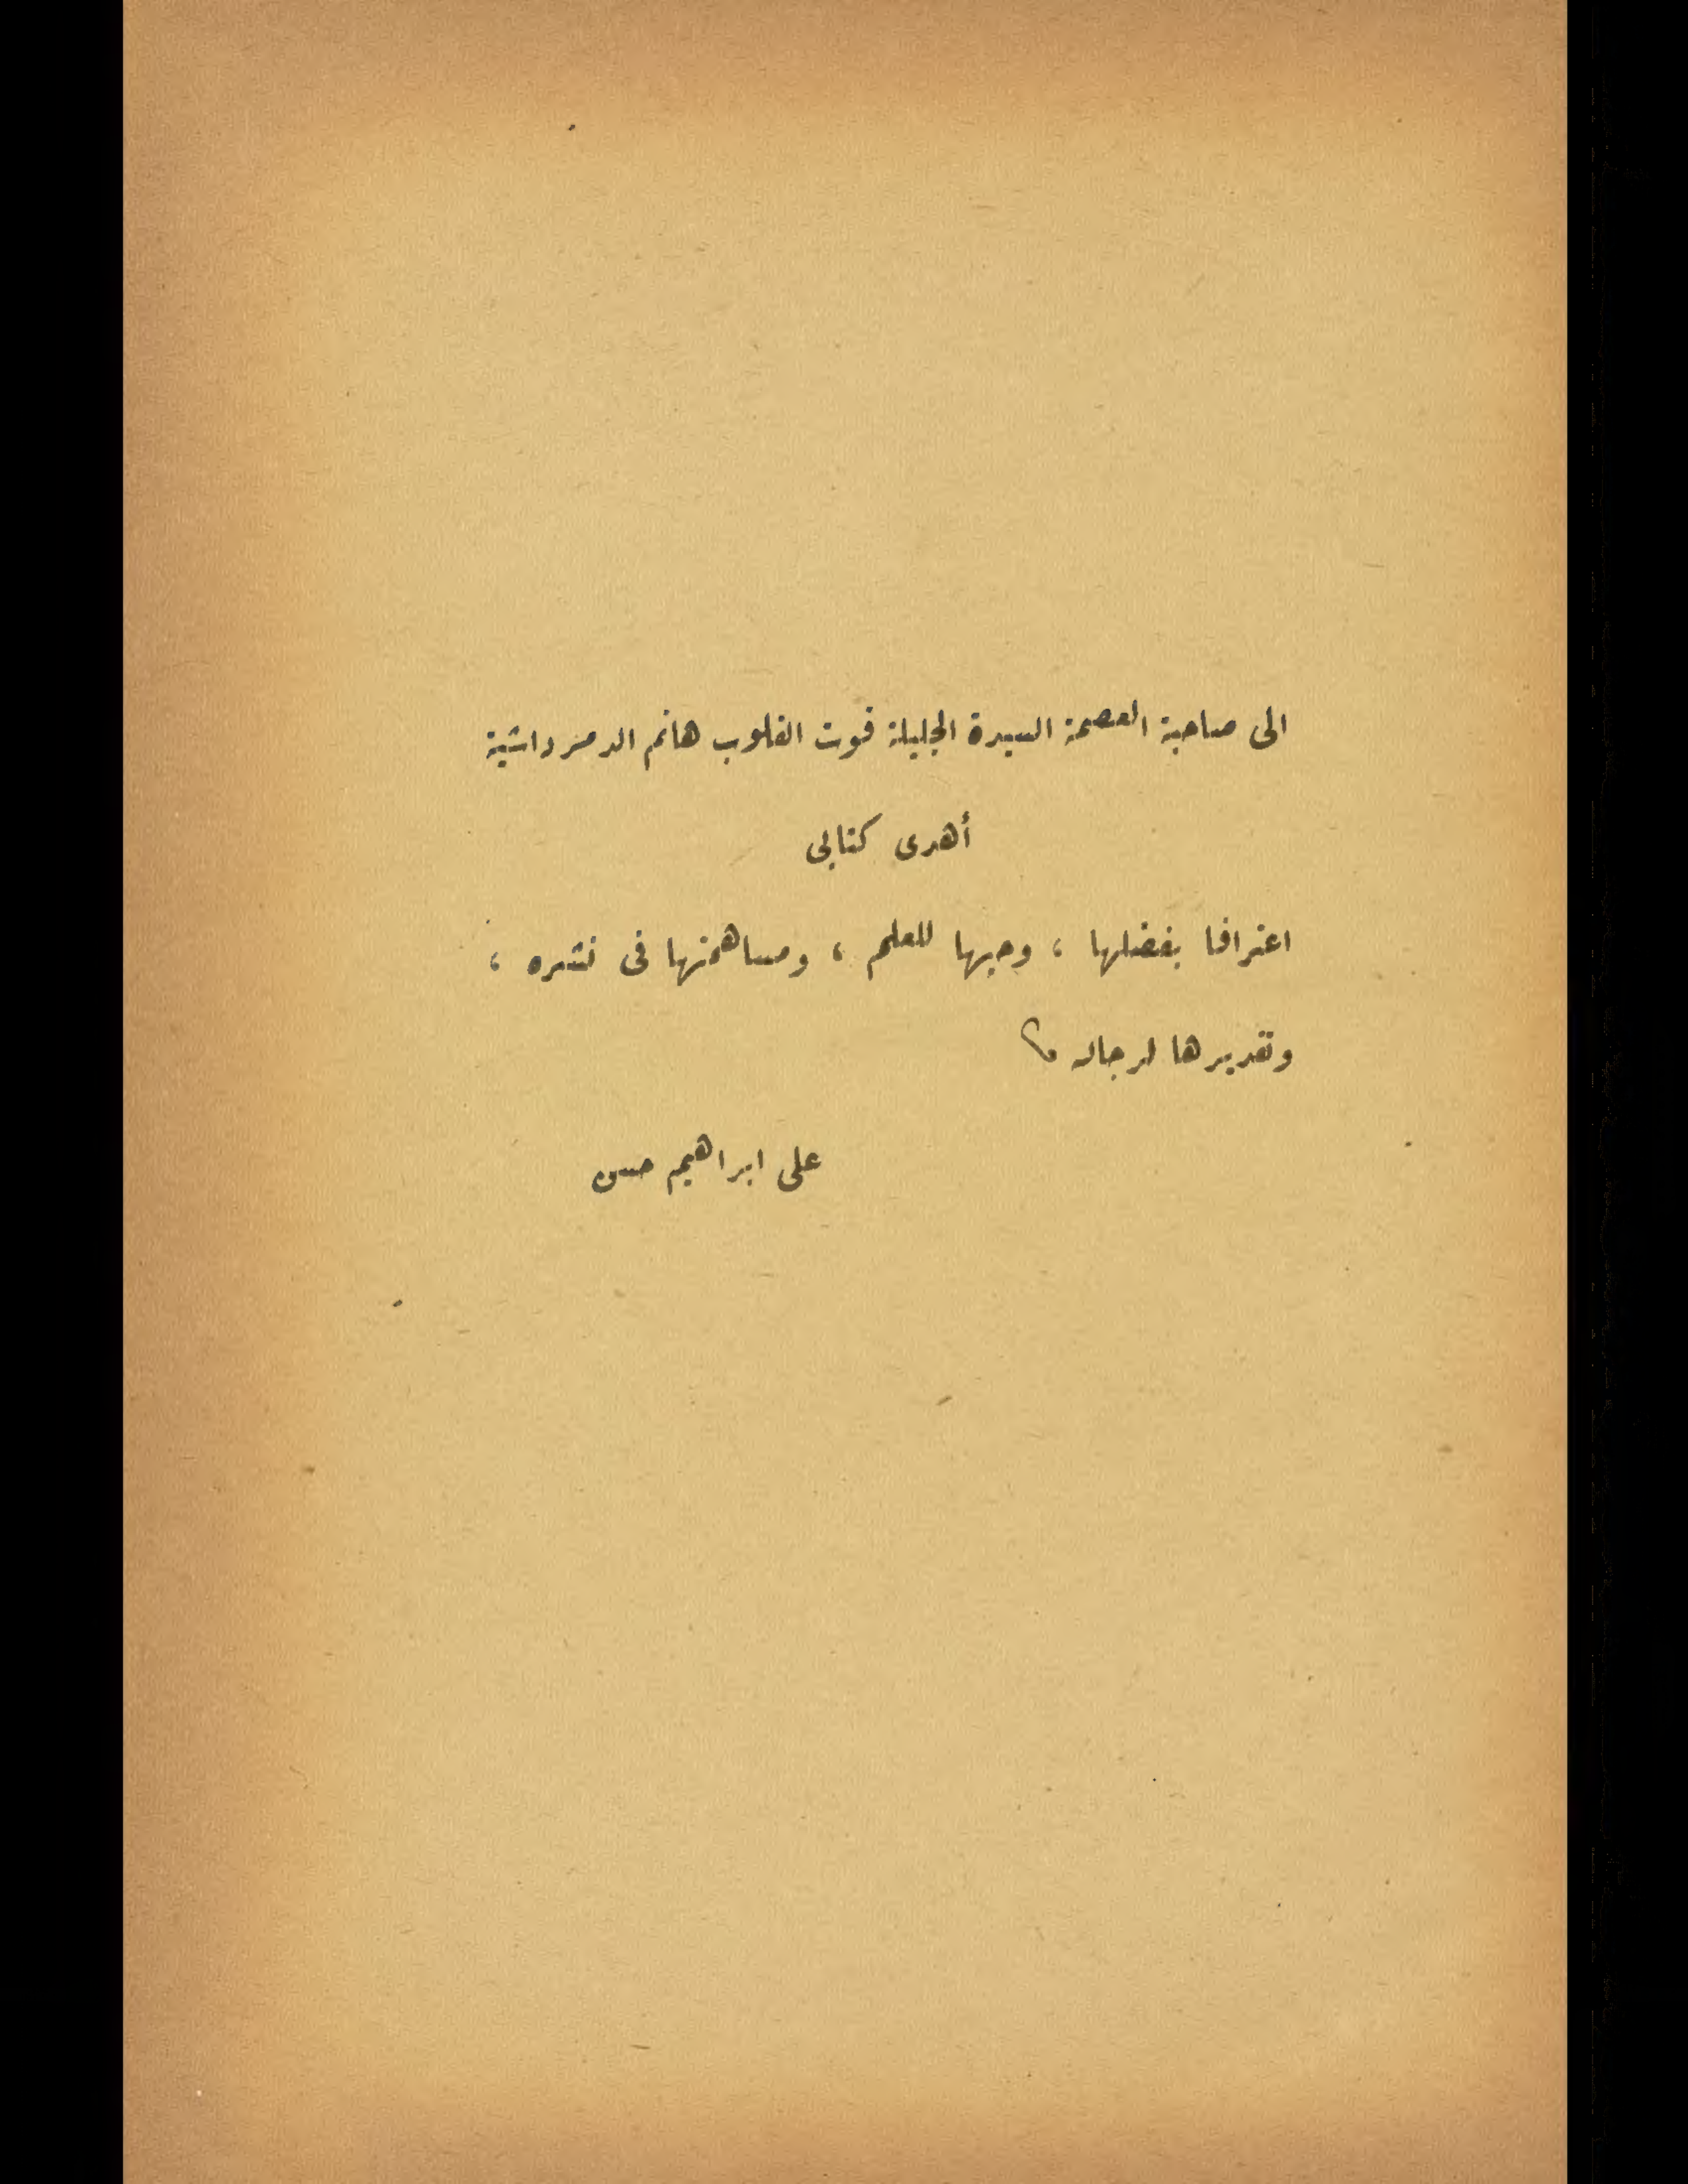 الى صاحبة العصمة السيدة الجليلة قوت القلوب هانم الدمرداشية
أهدى كتابى
اعترافا بفضلها ، وحبها للعلم ، ومساهمتها فى نشره ،
وتقديرها لرجاله
على ابراهيم حسن